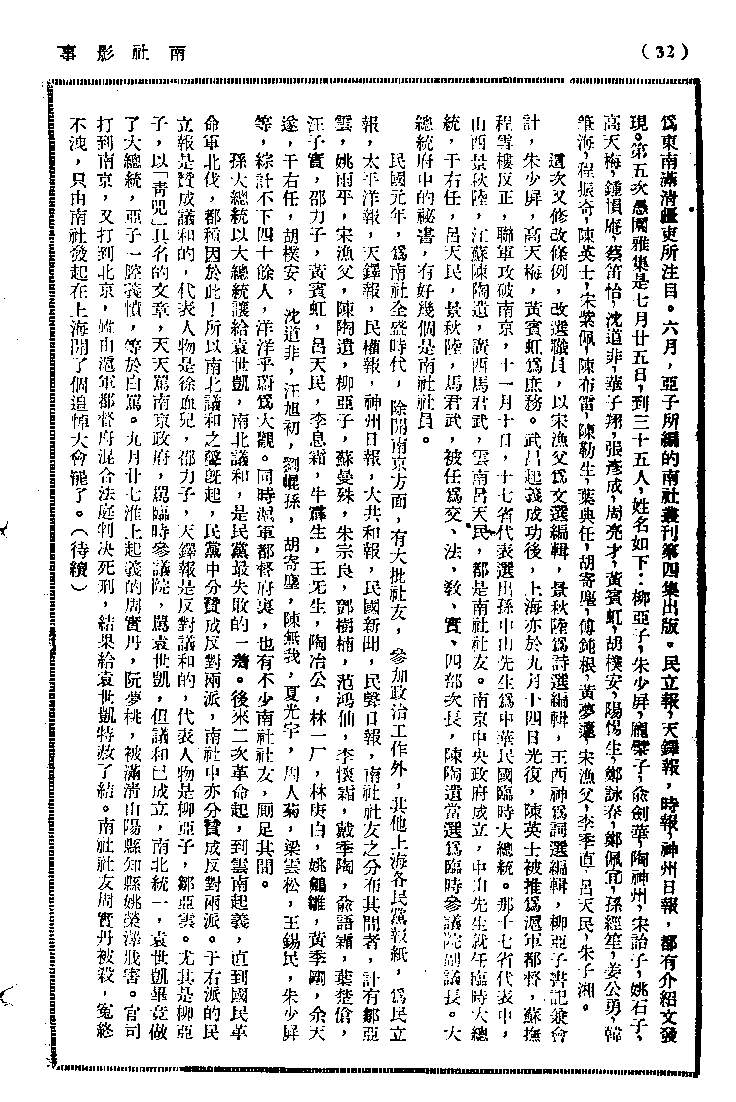 (32)
南社影事
爲東南滿清疆吏所注目。六月，亞子所編的南社叢刊第四集出版。民立報，天鐸報，時報，神州日報，都有介紹文發
現。第五次愚園雅集是七月廿五日，到三十五人，姓名如下：柳亞子，朱少屏，龐檗子，俞劍華，陶神州，宋詒子，姚石子，
高天梅，鍾惯庵，蔡笛怡，沈道非，華子翔，張彥成，周亮才，黃賓虹，胡樸安，陽惕生，鄭詠春，鄭佩宜，孫經笙，姜公勇，韓
筆海，程振奇，陳英士，宋紫佩，陳布雷，陳勒生，葉典任，胡寄塵，傅鈍根，黃夢蘧，宋漁父，李季直，呂天民，朱子湘。
這次又修改條例，改選職員，以宋漁父爲文選編輯，景秋陸爲詩選編輯，王西神爲詞選編輯，柳亞子書記兼會
計，朱少屏，高天梅，黃賓虹爲庶務。武昌起義成功後，上海亦於九月十四日光復，陳英士被推爲滬軍都督，蘇撫
程雪樓反正，聯軍攻破南京，十一月十日，十七省代表選出孫中山先生爲中華民國臨時大總統。那十七省代表中，
山西景秋陸，江蘇陳陶遺，廣西馬君武，雲南呂天民，都是南社社友。南京中央政府成立，中山先生就任臨時大總
統，于右任，呂天民，景秋陸，馬君武，被任爲交、法、敎、實、四部次長，陳陶遺當選爲臨時參議院副議長。大
總統府中的秘書，有好幾個是南社社員。
民國元年，爲南社全盛時代，除開南京方面，有大批社友，參加政治工作外，其他上海各民黨報紙，爲民立
報，太平洋報，天鐸報，民權報，神州日報，大共和報，民國新聞，民聲日報，南社社友之分布其間者，計有鄒亞
雲，姚雨平，宋漁父，陳陶遺，柳亞子，蘇曼殊，朱宗良，鄧樹楠，范鴻仙，李懷霜，戴季陶，俞語霜，葉楚傖，
汪子實，邵力子，黃賓虹，呂天民，李息霜，牛霹生，王无生，陶冶公，林一厂，林庚白，姚鵷雛，黃季剛，余天
遂，于右任，胡樸安，沈道非，汪旭初，劉崐孫，胡寄塵，陳無我，夏光宇，周人菊，梁雲松，王錫民，朱少屏
等，綜計不下四十餘人，洋洋乎蔚爲大觀。同時滬軍都督府裏，也有不少南社社友，廁足其間。
孫大總統以大總統讓給袁世凱，南北議和，是民黨最失敗的一着。後來二次革命起，到雲南起義，直到國民革
命軍北伐，都種因於此！所以南北議和之聲旣起，民黨中分贊成反對兩派，南社中亦分贊成反對兩派。于右派的民
立報是贊成議和的，代表人物是徐血兒，邵力子，天鐸報是反對議和的，代表人物是柳亞子，鄒亞雲。尤其是柳亞
子，以「靑兕」具名的文章，天天罵南京政府，罵臨時參議院，罵袁世凱，但議和已成立，南北統一，袁世凱畢竟做
了大總統，亞子一腔義憤，等於白罵。九月廿七淮上起義的周實丹，阮夢桃，被滿清山陽縣知縣姚榮澤戕害。官司
打到南京，又打到北京，始由滬軍都督府混合法庭判决死刑，結果給袁世凱特赦了結。南社社友周實丹被殺，寃終
不洩，只由南社發起在上海開了個追悼大會罷了。（待續）